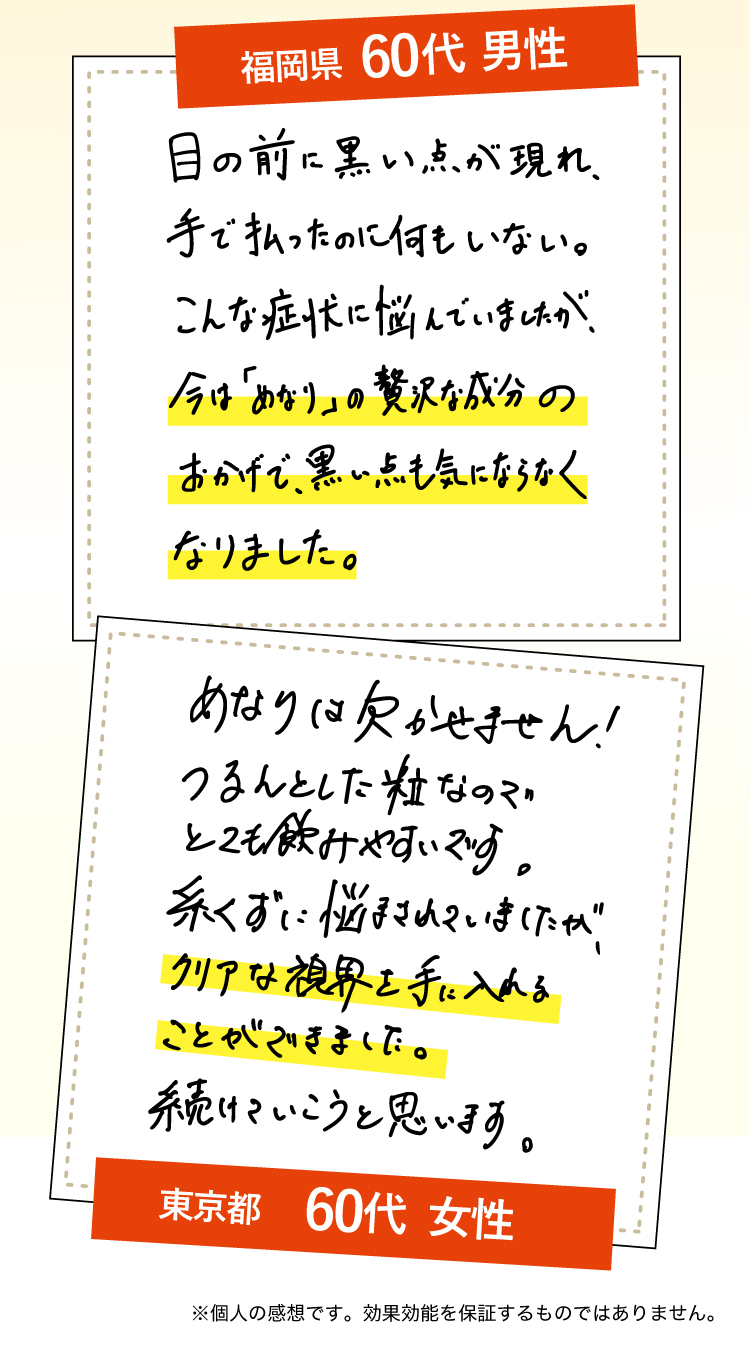 福岡県 60代 男性
目の前に黒い点が現れ、
手で払ったのに何もいない。
こんな症状に悩んでいましたが、
今は「めなり」の贅沢な成分の
おかげで、黒い点も気にならなく
なりました。
めなりは欠かせません!
つるんとした粒なので
とても飲みやすいです。
糸くずに悩まされていましたが、
クリアな視界を手に入れる
ことができました。
続けていこうと思います。
東京都 60代 女性
※個人の感想です。効果効能を保証するものではありません。